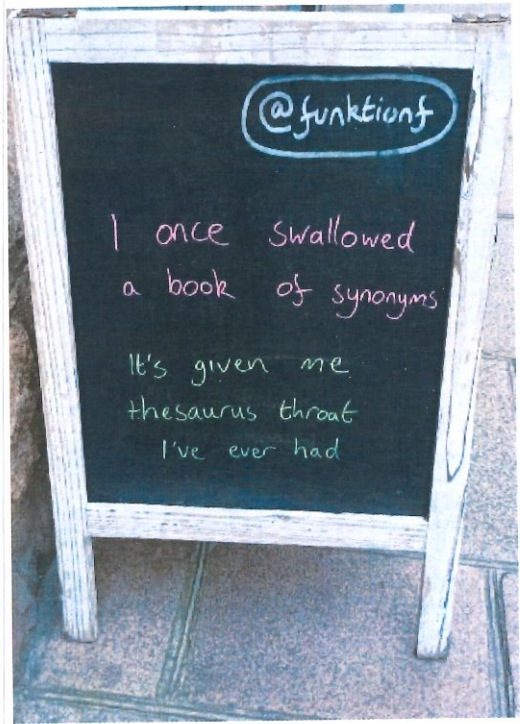 @funktionf
I once swallowed
a book of synonyms
It's given me
thesaurus throat
I've ever had